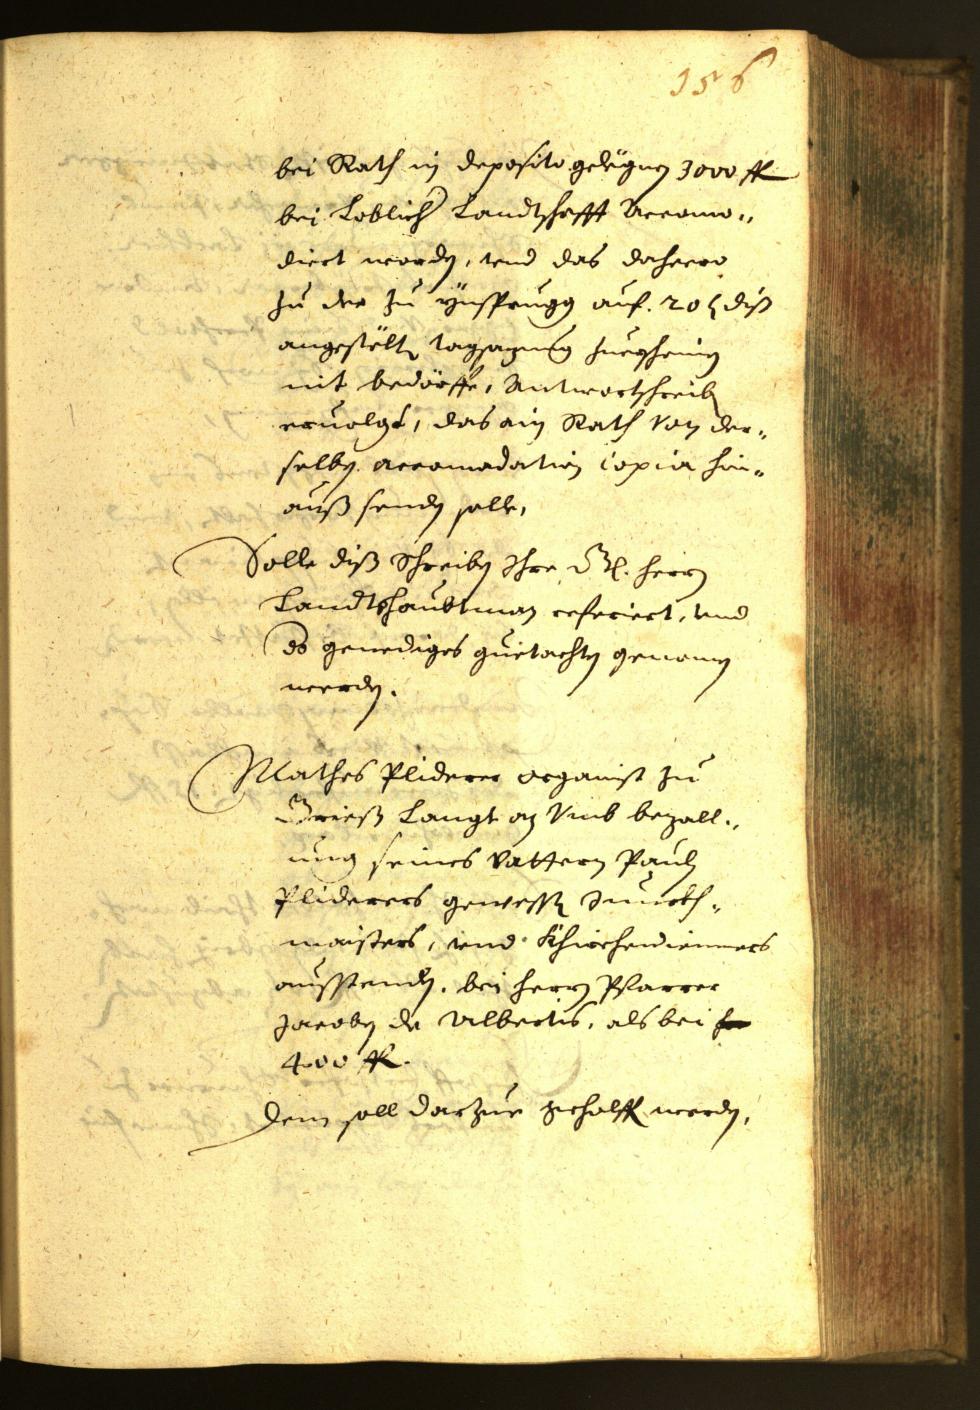 156
bei Rath in deposito gelegnen 3000 fl
bei Loblicher Landtschafft Accomo„
diert worden, vnd das dahero
zu der zu Ynsprugg auf. 20 diß
angestölten tagsazung zuerscheinen
nit bedörffe, Antwortschreiben
eruolgt, das ain Rath von der„
selben accomadation copia hin„
auß senden solle,
Solle diß Schreiben Ihr Gn. herrn
Landtshaubtman referiert, vnd
genediges guetachten genomen
werden.
Mathes Pliderer organist zu
Grieß Langt an Vmb bezall„
ung seines Vattern Paulen
Pliderers gewesten
maisters, vnd Khirchendienners
ausstendt, bei herrn Pfarrer
Jacoben de Albertis, als bei
400 fl.
Dem soll darzue geholffen werden,